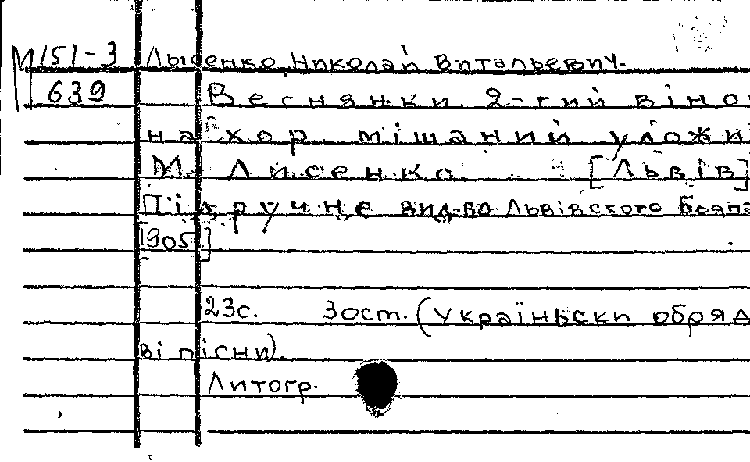 М 151-3 Лысенко, Николай Витальевич.
639 Веснянки 2-гий віно
на хор мішаний уложи
М. Лисенко. [Львів]
Підручне вид-во Львівского
1905]
23с. Зост. (Україньски обряд
ві пісни).
Литогр.